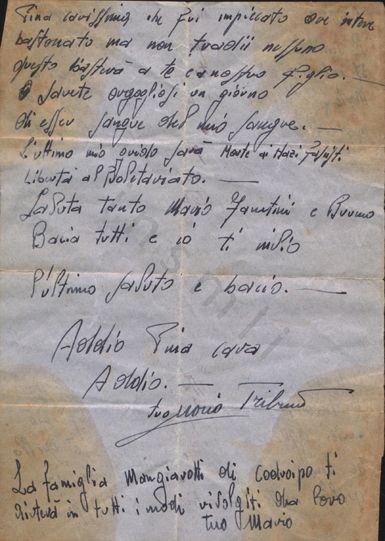 Pina carissima che fui impiccato ore intere
bastonato ma non tradii nessuno
questo basterà a te e a nostro figlio. —
E sarete orgogliosi un giorno
di esser sangue del mio sangue. —
L'ultimo mio grido sarà Morte ai Nazi Fascisti
Libertà al Proletariato. —
Saluta tanto Mario Fantini e Bruno
Bacia tutti e io ti invio
l'ultimo saluto e bacio. —
Addio Pina cara
Addio. —
tuo Mario
La famiglia Mangiarotti di Codroipo ti
aiuterà in tutti i modi rivolgiti da loro
tuo Mario